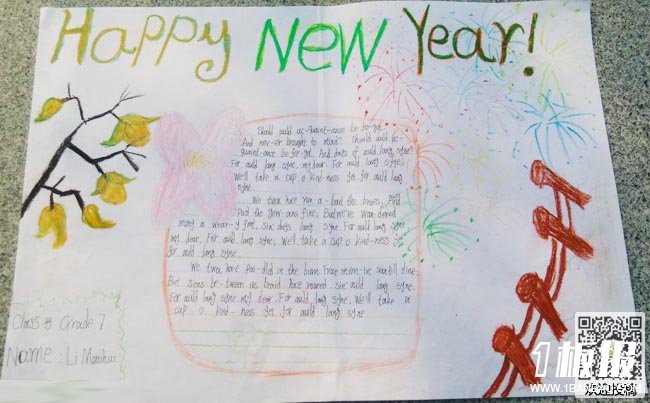 Happy New Year!
Should auld ac-quaint-ance be for-got.
And nev-er brought to mind? Should auld ac-
quaint-ance be for-got. And days of auld lang syne?
For auld lang syne, my dear. For auld lang syne,
We'll take a cup o kind-ness yet for auld lang
syne.
We twa have run a-bout the braes. And
And we've wan-dered
mony a wear-y foot. Sin' auld lang syne. For auld lang syne.
my dear. For auld lang syne, We'll take a cup o kind-ness yet
for auld lang syne.
We twa have pai-dled in the burn From morn-in sun till dine.
But seas be-tween us braid have roared. sin' auld lang syne.
For auld lang syne. my dear. For auld lang syne. We'll take a
cup o kind-ness yet for auld lang syne
Class 3 Grade 7
Name: Li
1板报
WWW.1BANBAO.COM
欢迎投稿